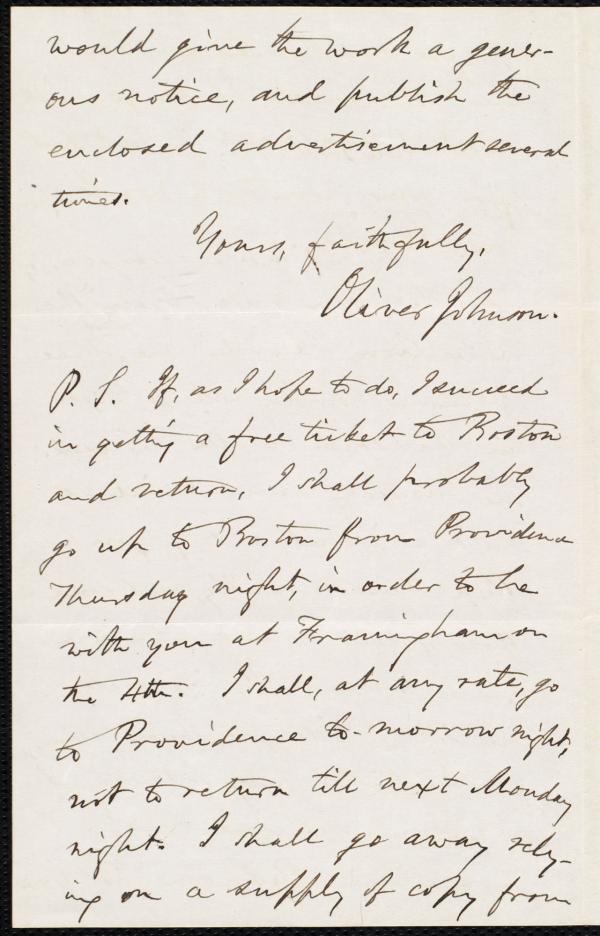 would give the work a gener-
ous notice, and publish the
enclosed advertisement several
times.
Yours, faithfully,
Oliver Johnson.
P. S. If, as I hope to do, I succeed
in getting a free ticket to Boston
and return, I shall probably
go up to Boston from Providence
Thursday night, in order to be
with you at Framingham on
the 4th. I shall, at any rate, go
to Providence to-morrow night,
not to return till next Monday
night. I shall go away rely-
ing on a supply of copy from